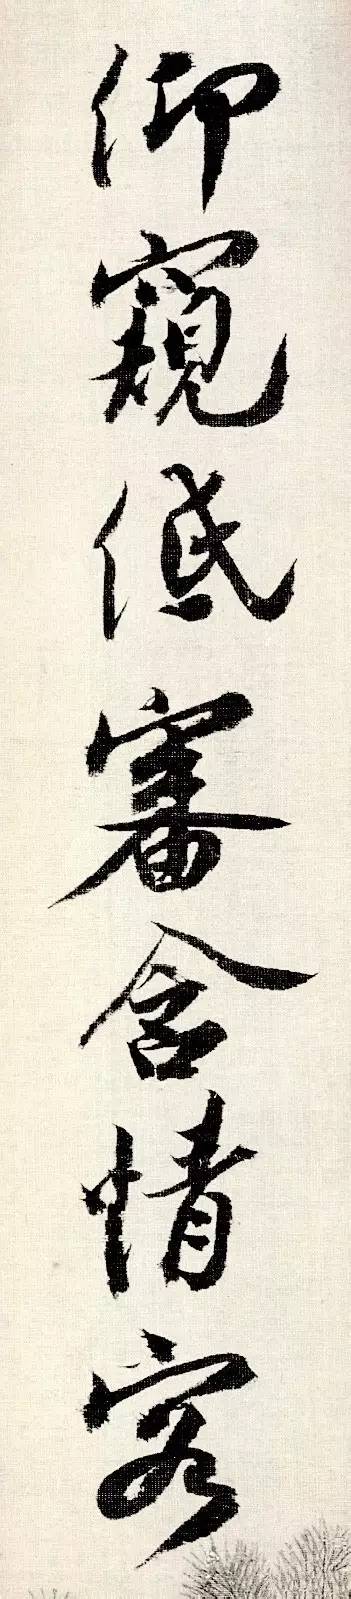 仰窺低審含情客